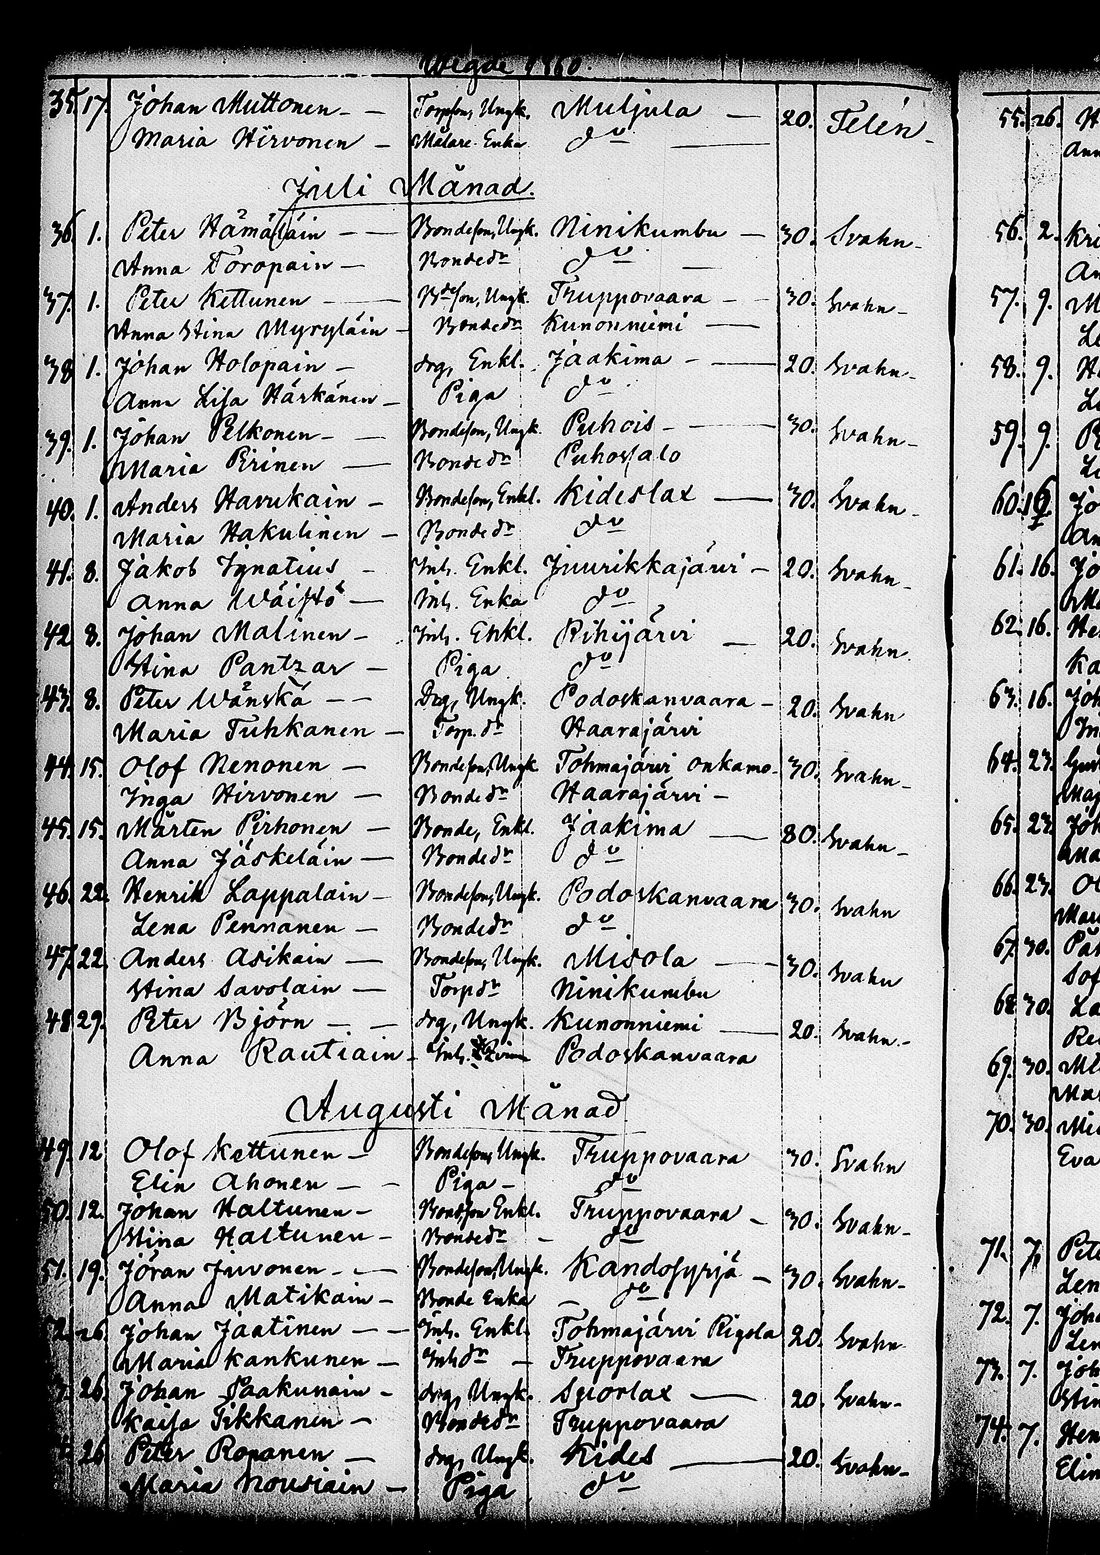 Wigde 1860.
35. 17. Johan Muttonen — Torpson, Ungk. Muljula — 20. Telén
Maria Hirvonen — Målare Enka do —
Juli Månad.
36. 1. Peter Hämäläin — — Bondeson, Ungk. Ninikumbu — 30. Svahn
Anna Toropain — Bondedr do —
37. 1. Peter Kettunen — Bdeson, Ungk. Truppovaara — 30. Svahn
Anna Stina Myryläin — Bondedr Kunonniemi —
38. 1. Johan Holopain — drg, Enkl. Jaakima — 20. Svahn
Anna Lisa Härkänen — Piga do
39. 1. Johan Pelkonen — Bondeson, Ungk. Puhois — 30. Svahn
Maria Pirinen — Bondedr Puhossalo
40. 1. Anders Havukain — Bondeson, Enkl. Kideslax — 30. Svahn
Maria Hakulinen — Bondedr do
41. 8. Jakob Ignatius — Inh. Enkl. Juurikkajärvi — 20. Svahn
Anna Wäistö — Inh. Enka do
42. 8. Johan Malinen — Inh. Enkl. Rihijärvi — 20. Svahn
Stina Pantzar — Piga do
43. 8. Peter Wänskä — — Drg, Ungk. Podoskanvaara — 20. Svahn
Maria Tuhkanen — Torp. dr Haarajärvi
44. 15. Olof Nenonen — Bondeson, Ungk Tohmajärvi onkamo — 30. Svahn
Inga Hirvonen — Bondedr Haarajärvi —
45. 15. Mårten Pirhonen — Bonde, Enkl. Jaakima — 80. Svahn
Anna Jäskeläin — Bondedr do
46. 22. Henrik Lappalain — Bondeson, Ungk. Podoskanvaara 30. Svahn
Lena Pennanen — Bondedr do
47. 22. Anders Asikain — Bondeson, Ungk. Misola — 30. Svahn
Stina Savolain — Torpdr Ninikumbu
48. 29. Peter Björn — — drg, Ungk. Kunonniemi — 20. Svahn
Anna Rautiain — Inh. Podoskanvaara
Augusti Månad
49. 12 Olof Kettunen — Bondeson, Ungk. Truppovaara 30. Svahn
Elin Ahonen — — Piga — do
50. 12. Johan Haltunen — Bondeson Enkl. Truppovaara — 30. Svahn
Stina Haltunen — Bondedr — do
51. 19. Jöran Juvonen — Bondeson, Ungk. Kandosyrjä — 30. Svahn
Anna Matikain — Bonde Enka — do
52. 26. Johan Jaatinen — Inh. Enkl. Tohmajärvi Rigola 20. Svahn
Maria Kankunen — Inhdr — Truppovaara
26. Johan Paakunain — drg, Ungk. Suorlax — 20. Svahn
Kaisa Tikkanen — Bondedr Truppovaara
26 Peter Ropanen — drg, Ungk. Kides — 20. Svahn
Maria Nousiain — Piga do
55. 26. H
Ann
56. 2. Kri
An
57. 9. M
Le
58. 9. He
Le
59. 9. P
Le
60. Jo
An
61. 16. Jo
Ma
62. 16. He
Ka
63. 16. Joh
In
64. 23. Gus
Maj
65. 23. Joh
Ana
66. 23. Ol
Mar
67. 30. På
Sof
68. 30. La
Re
69. 30. Ma
Mar
70. 30. Mi
Eva
71. 7. Pete
Len
72. 7. Joha
Len
73. 7. Joh
Stin
74. 7. Hen
Elin